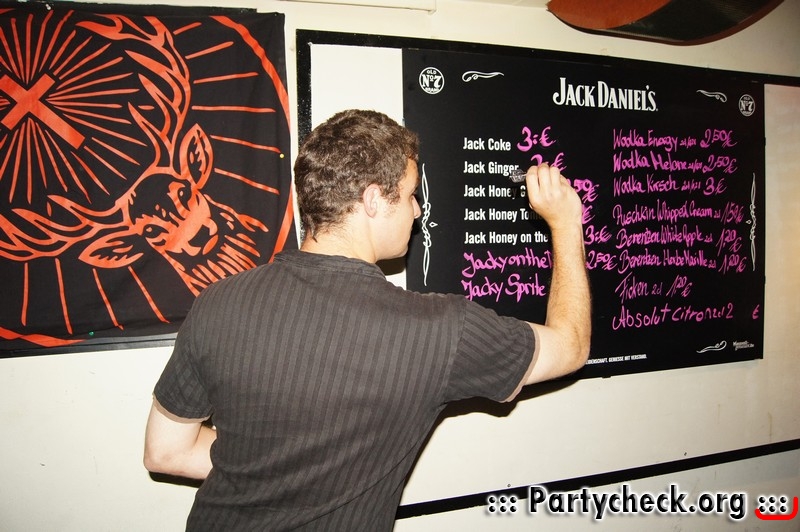 OLD
Nº7
BRAND
JACK DANIEL'S
Nº7
Jack Coke 3:-€
Jack Ginger 3:-€
Jack Honey
Jack Honey
Jack Honey on the 3:-€
Jacky on the 2,50€
Jacky Sprite
Wodka Energy 2,50€
Wodka Melone 2,50€
Wodka Kirsch 3€
Puschkin Whipped Cream 1,50€
Berentzen White Apple 1,20€
Berentzen 1,20€
Ficken 2cl 1,20€
Absolut Citron 2cl 2 €
GENIESSE MIT VERSTAND.
::: Partycheck.org :::